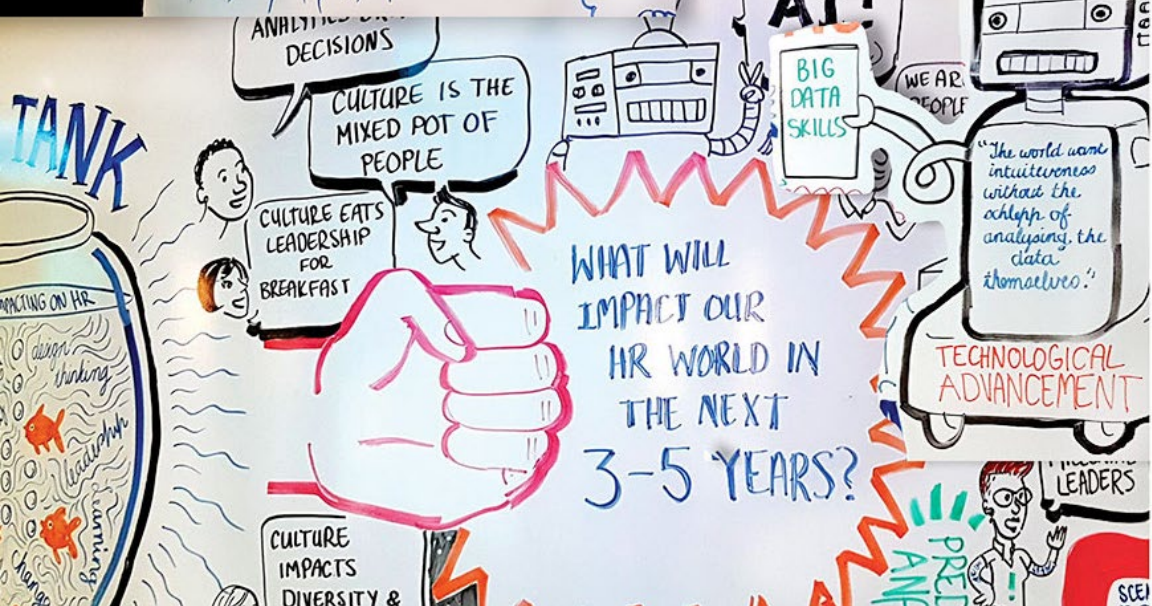 DECISIONS
CULTURE IS THE
MIXED POT OF
PEOPLE
TANK
CULTURE EATS
LEADERSHIP
FOR
BREAKFAST
IMPACTING ON HR
design
thinking
leadership
learning
change
CULTURE
IMPACTS
DIVERSITY &
WHAT WILL
IMPACT OUR
HR WORLD IN
THE NEXT
3-5 YEARS?
AI!
BIG
DATA
SKILLS
WE ARE
PEOPLE
"The world want
intuiteveness
without the
schlepp of
analysing the
data
themselves."
TECHNOLOGICAL
ADVANCEMENT
LEADERS
PRED
ANA
SCE